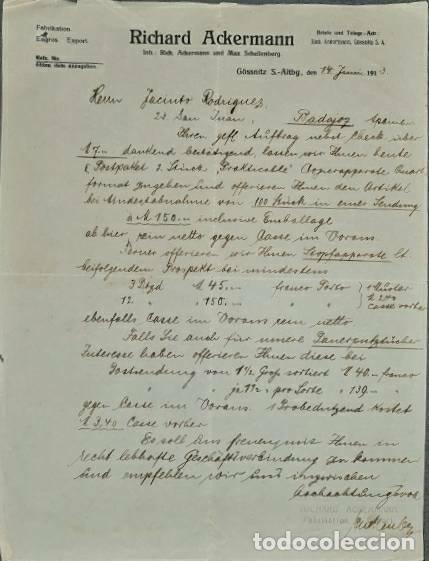 Fabrikation
Engros Export.
Richard Ackermann
Inh.: Rich. Ackermann und Max Schellenberg
Briefe und Telegr.-Adr.:
Rich. Ackermann, Gössnitz S. A.
Gössnitz S.-Altbg., den 14 Juni 1913
Herrn Jacinto Rodriguez,
23 San Juan,
Badajoz
Ihren gefl. Auftrag nebst Check über
M 7.- dankend bestätigend, lassen wir Ihnen heute
Postpaket 2 Stück „Praktikable" Copierapparate Quart
format zugehen und offerieren Ihnen den Artikel
bei Mindestabnahme von 100 Stück in einer Sendung
à M 150.- inclusive Emballage
ab hier, rein netto gegen Casse im Voraus.
Ferner offerieren wir Ihnen Stopfapparate lt.
beifolgendem Prospekt bei mindestens
3 Dtzd M 45.- franco Porto
12 " " 150.- " "
1 Muster
M 2.40
Casse vorher
ebenfalls Casse im Voraus rein netto
Falls Sie auch für unsere Dauerputztücher
Interesse haben offerieren Ihnen diese bei
Postsendung von 1½ Groß sortiert M 40.- franco
" " je 1½ " pro Sorte " 139.-
gegen Casse im Voraus. 1 Probedutzend kostet
M 3,40 Casse vorher
Es soll uns freuen, mit Ihnen in
recht lebhafte Geschäftsverbindung zu kommen
und empfehlen wir uns inzwischen
hochachtungsvoll
RICHARD ACKERMANN
todocoleccion.net